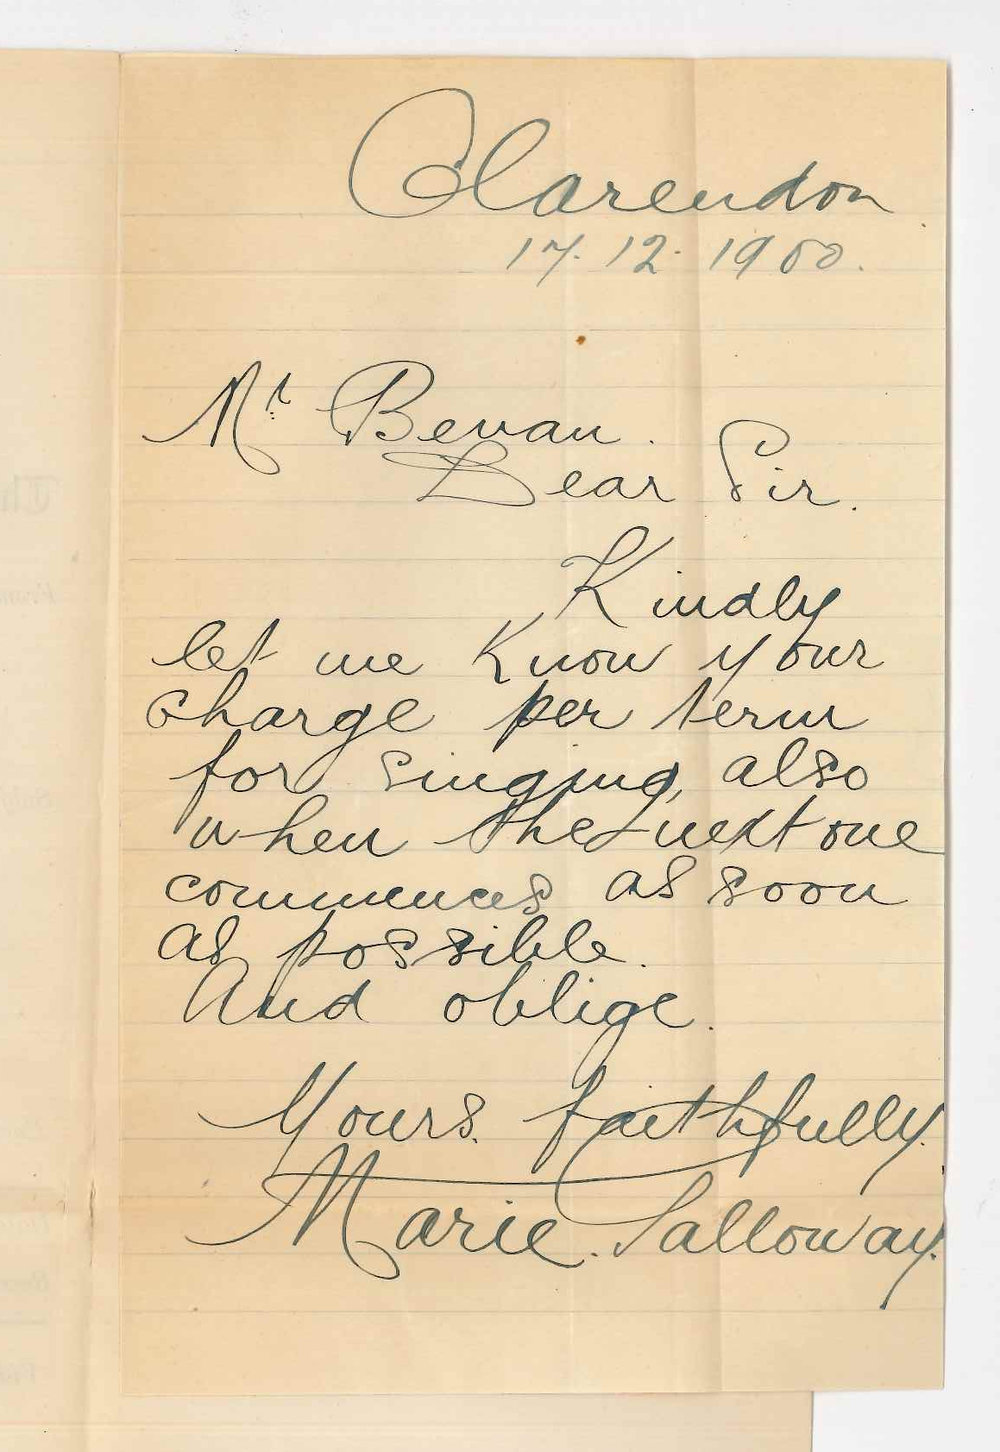 Clarendon
17.12.1900.
Mr Bevan.
Dear Sir.
Kindly
let me know your
charge per term
for singing, also
when the next one
commences as soon
as possible.
And oblige.
Yours. faithfully.
Marie. Salloway.